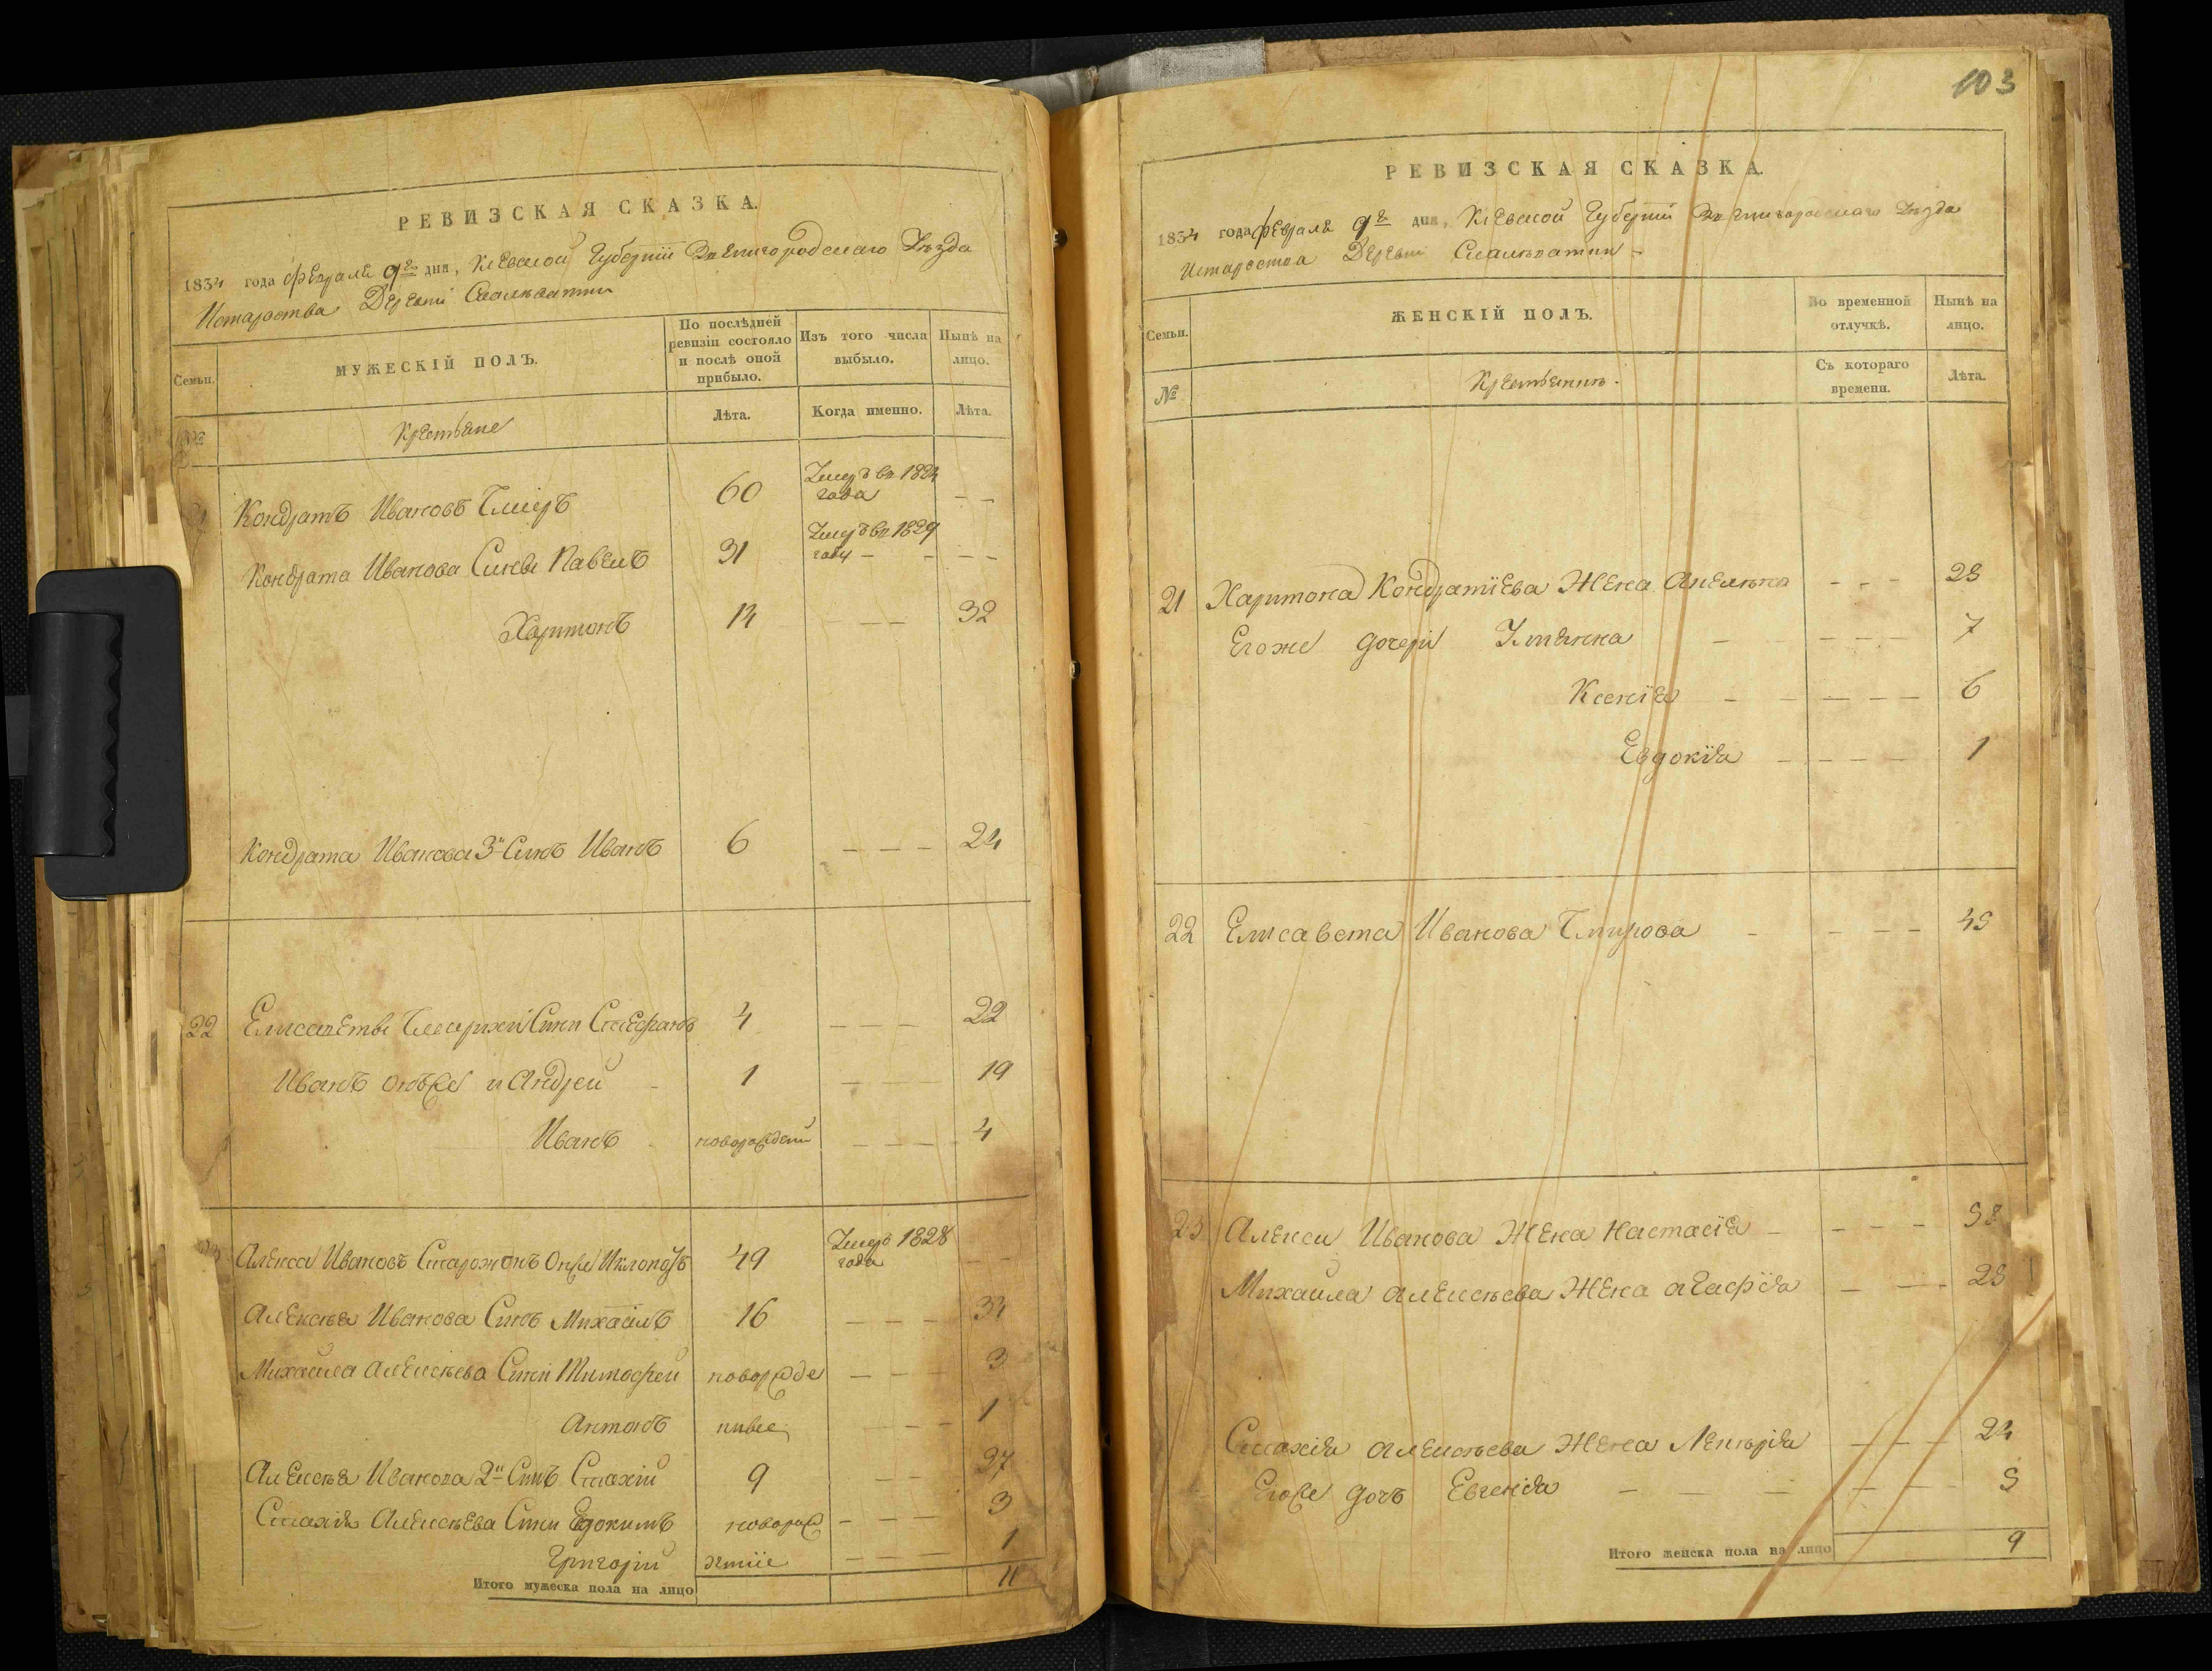 РЕВИЗСКАЯ СКАЗКА.
1834 года февраля 9го дня, Киевской Губернии Звенигородскаго Уѣзда
Истароства Деревни
Семьи.
МУЖЕСКІЙ ПОЛЪ.
По послѣдней ревизіи состояло и послѣ оной прибыло.
Изъ того числа выбыло.
Нынѣ на лицо.
№
Крестьяне
Лѣта.
Когда именно.
Лѣта.
21 Кондратъ Ивановъ 60 Умеръ въ 1824 года — —
Кондрата Иванова Сины Павелъ 31 Умеръ въ 1829 году — — — —
Харитонъ 14 — — 32
Кондрата Иванова 3й Синъ Иванъ 6 — — — 24
22 Елисаветы Сини Стефанъ 4 — — — 22
Иванъ онъже и Андрей — 1 — — 19
Иванъ новорожденii — — — 4
Алекса Ивановъ Сторожонъ Онже 49 Умеръ 1828 года — —
Алексѣя Иванова Синъ Михаилъ 16 — — — 34
Михаила Алексѣева Сини Тимофей новорожде — — — 3
Антонъ нные — — — 1
Алексѣя Иванова 2й Синъ 9 — — 27
Алексѣева Сини Евдокимъ новорож — — — 3
Григорій — — — 1
Итого мужеска пола на лицо 11
103
РЕВИЗСКАЯ СКАЗКА.
1834 года февраля 9го дня, Киевской Губернии Звенигородскаго Уѣзда
Истароства Деревни
Семьи.
ЖЕНСКІЙ ПОЛЪ.
Во временной отлучкѣ.
Нынѣ на лицо.
№
Съ котораго времени.
Лѣта.
21 Харитона Кондратіева Жена — — — 28
Егоже дочери Устинка — — — — 7
Ксенія — — — — — 6
Евдокія — — — — 1
22 Елисавета Иванова — — — — 45
23 Алексы Иванова Жена Настасія — — — —
Михаила Алексѣева Жена Агафія — — —
Алексѣева Жена — — — 24
Егоже дочъ Евгенія — — — — — — 5
Итого женска пола на лицо 9